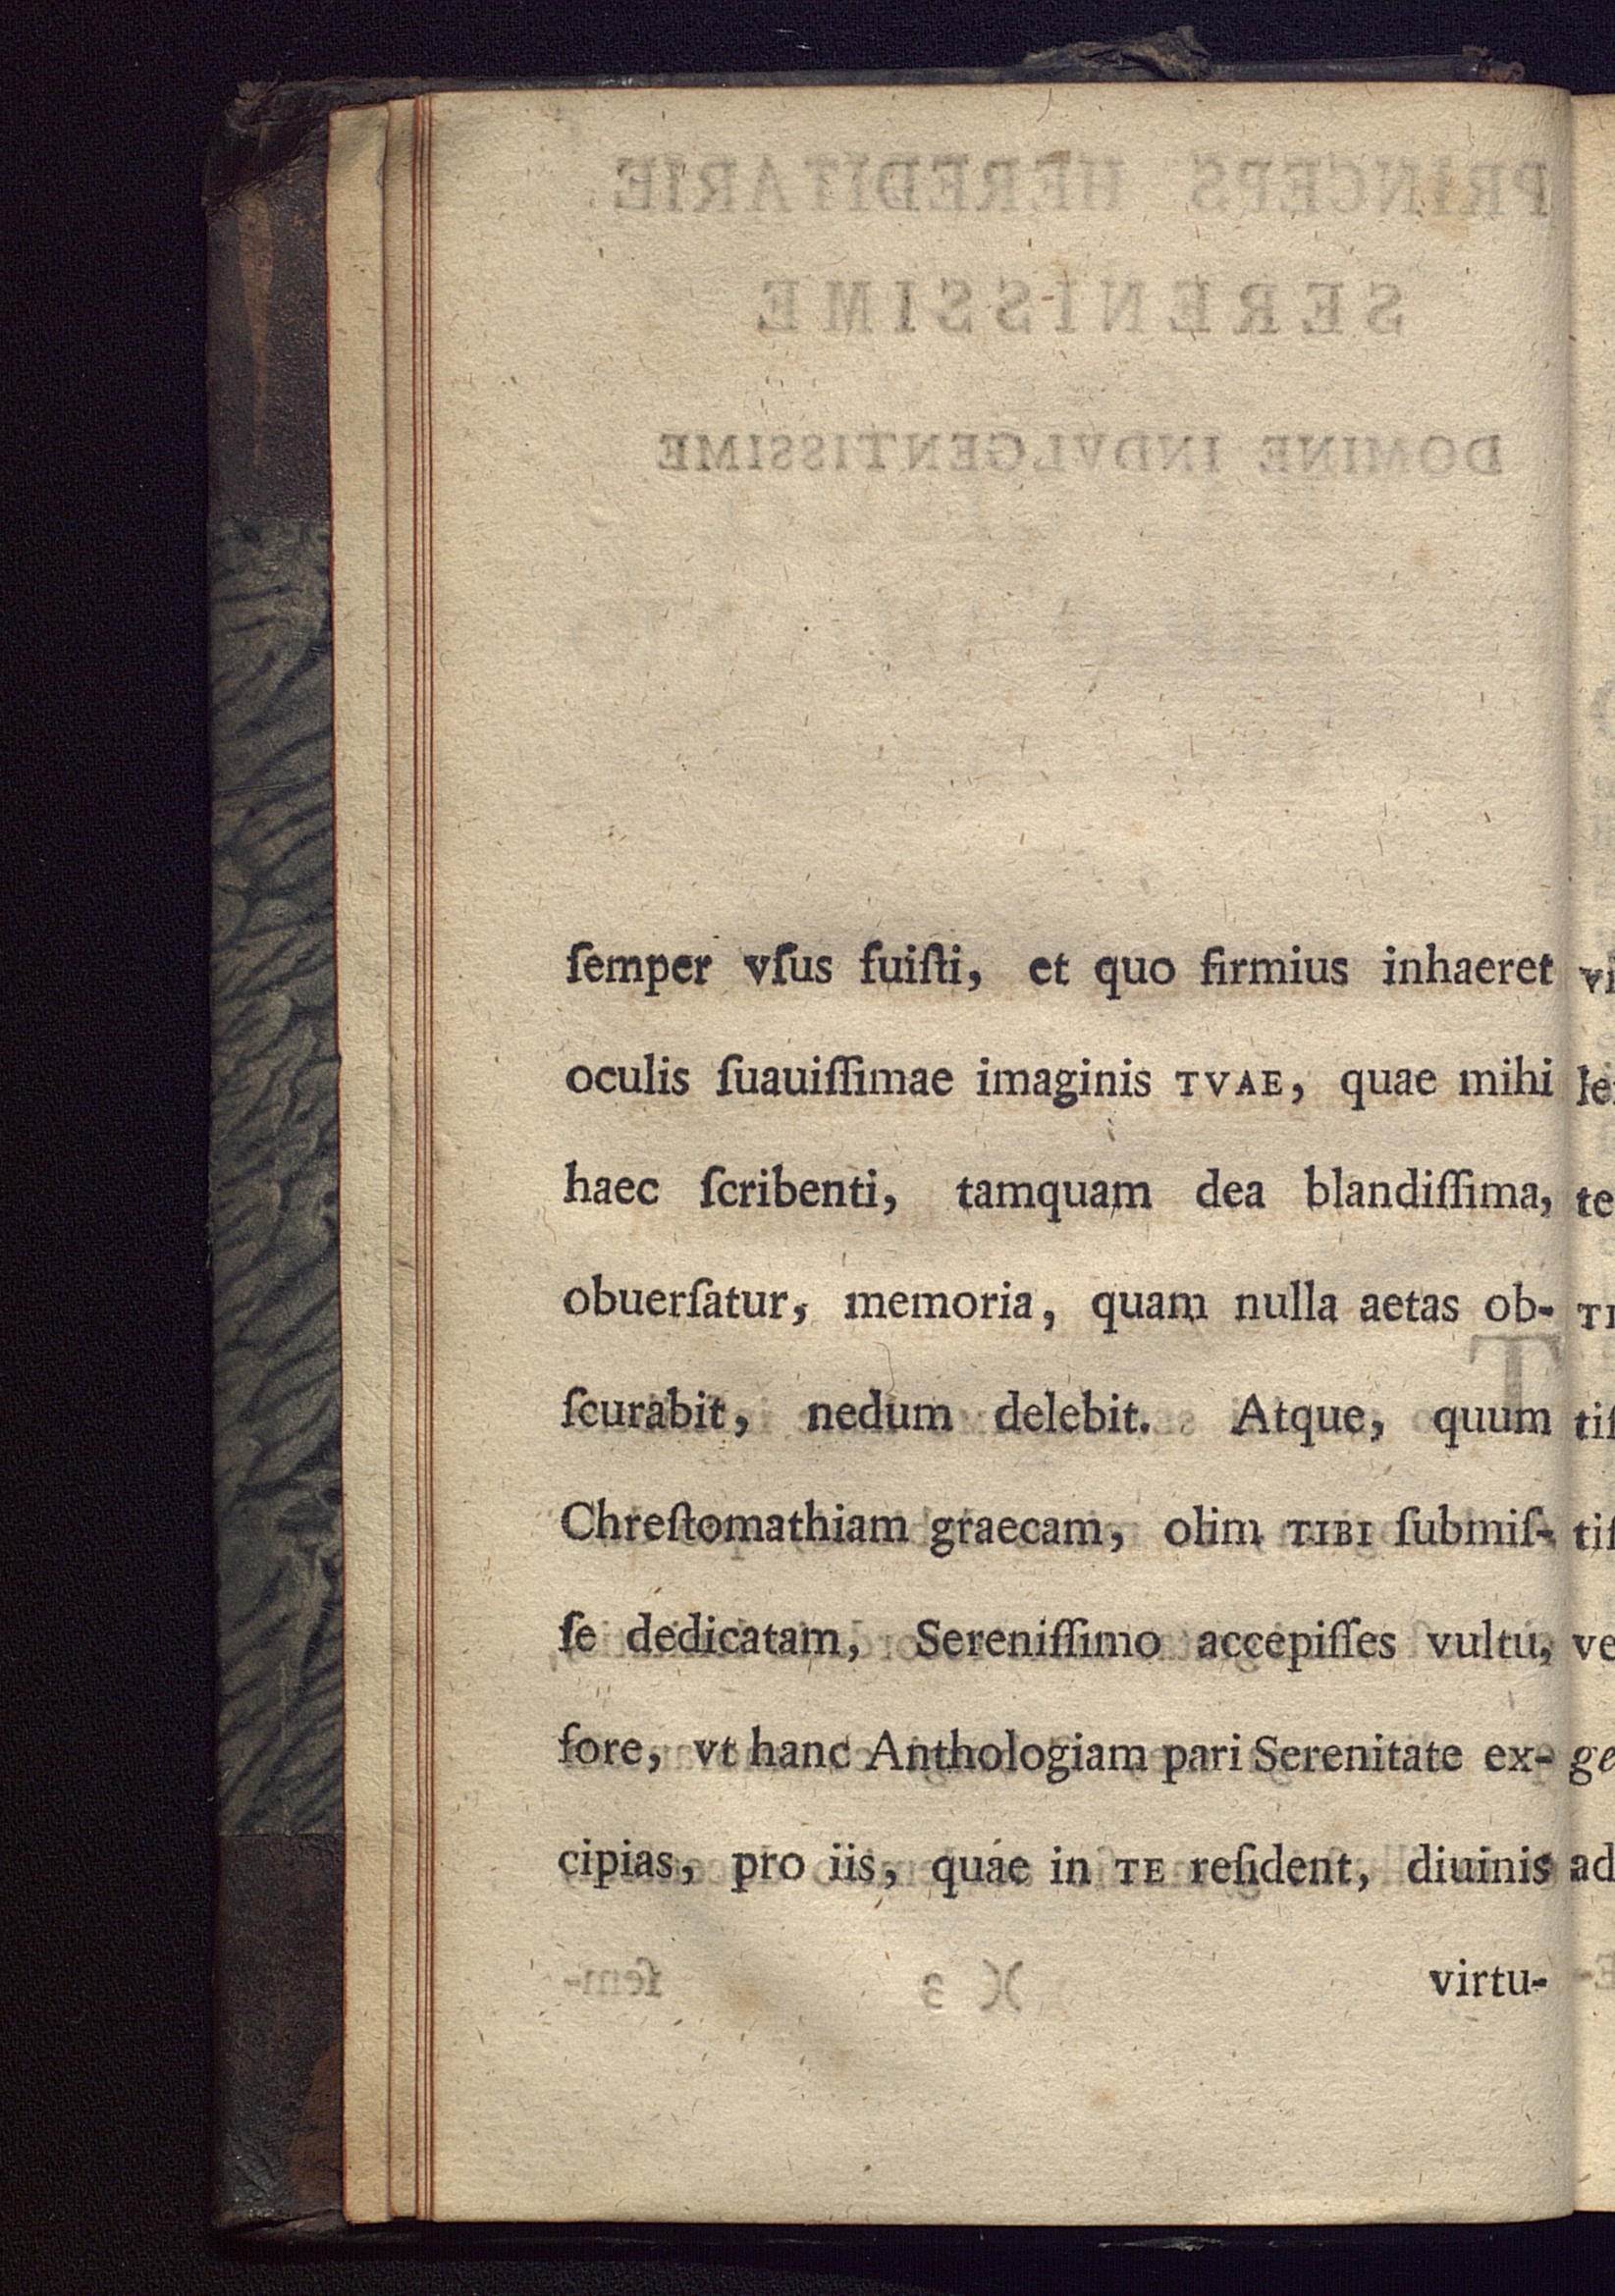 ſemper vſus fuiſti, et quo firmius inhaeret
oculis ſuauiſſimae imaginis TVAE, quae mihi
haec ſcribenti, tamquam dea blandiſſima,
obuerſatur, memoria, quam nulla aetas ob-
ſcurabit, nedum delebit. Atque, quum
Chreſtomathiam graecam, olim TIBI ſubmiſ-
ſe dedicatam, Sereniſſimo accepiſſes vultu,
fore, vt hanc Anthologiam pari Serenitate ex-
cipias, pro iis, quae in TE reſident, diuinis
virtu-